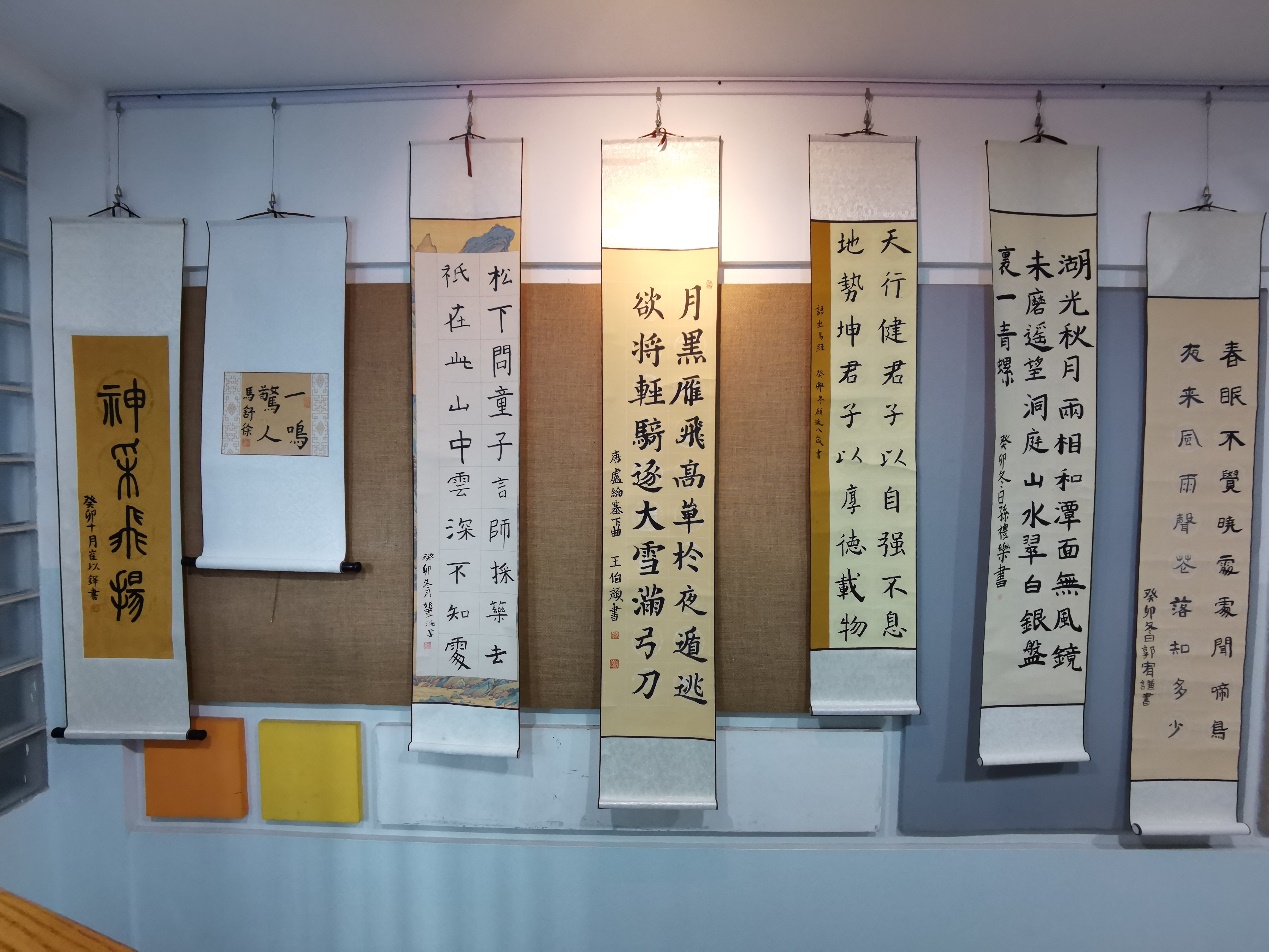 神采飛揚
癸卯十月崔以書
一鳴
驚人
馬舒徐
松下問童子言師採藥去
祇在此山中雲深不知處
癸卯冬月
月黑雁飛高草於夜遁逃
欲将輕騎逐大雪滿弓刀
唐盧綸塞下曲 王伯顏書
天行健君子以自强不息
地勢坤君子以厚德載物
語出易經 癸卯冬八歲書
湖光秋月兩相和潭面無風鏡
未磨遥望洞庭山水翠白銀盤
裏一青螺
癸卯冬日孫禮樂書
春眠不覺曉處處聞啼鳥
夜来風雨聲花落知多少
癸卯冬日郭宥書